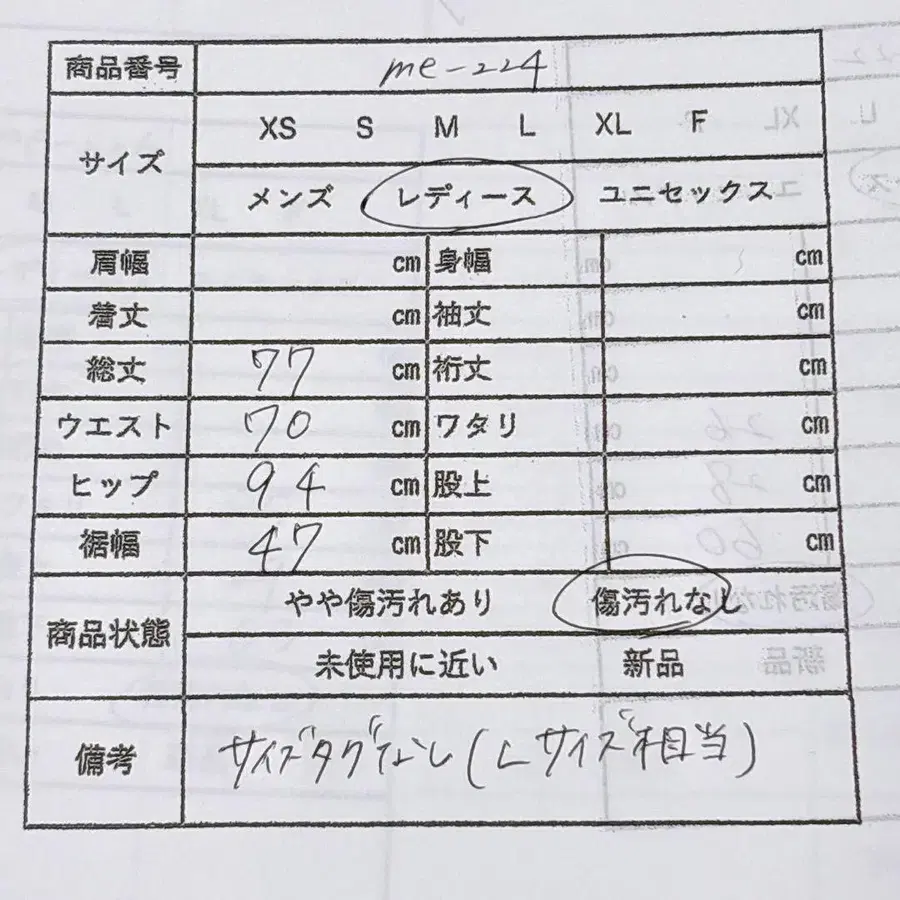 商品番号 me-224
サイズ XS S M L XL F
メンズ レディース ユニセックス
肩幅 cm 身幅 cm
着丈 cm 袖丈 cm
総丈 77 cm 裄丈 cm
ウエスト 70 cm ワタリ cm
ヒップ 94 cm 股上 cm
裾幅 47 cm 股下 cm
商品状態 やや傷汚れあり 傷汚れなし
未使用に近い 新品
備考 サイズタグなし(Lサイズ相当)